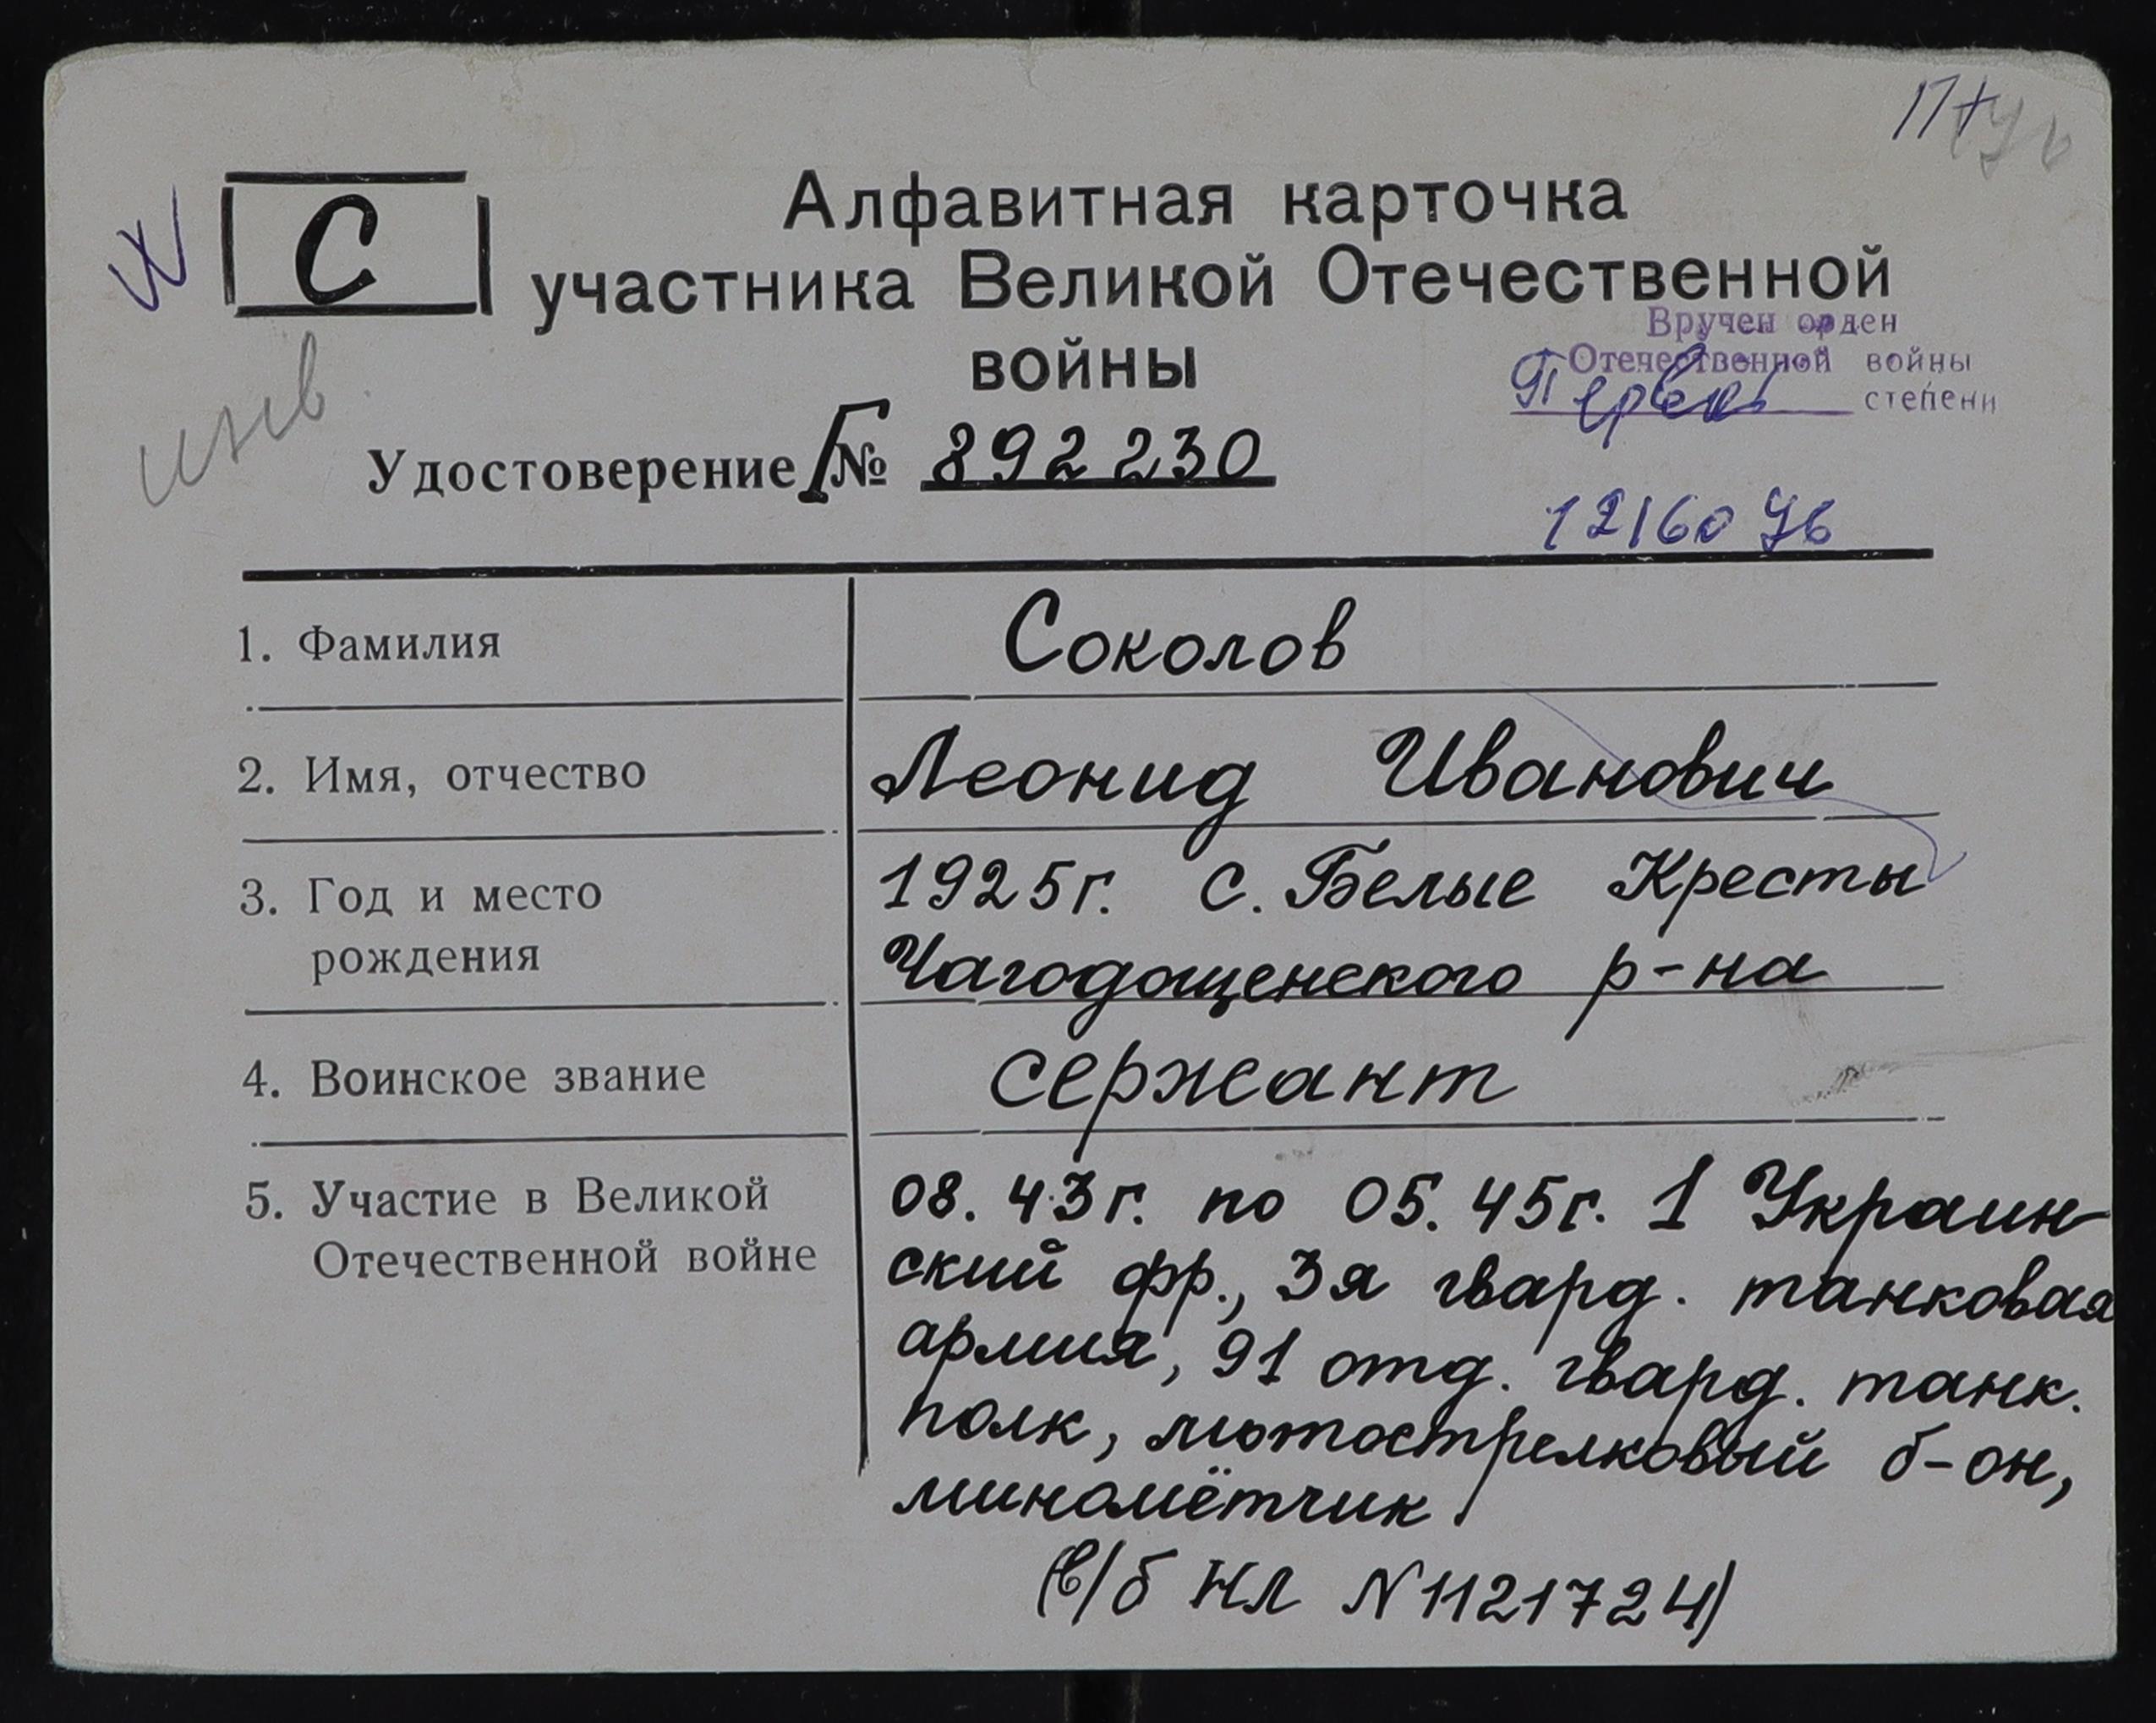 С
Алфавитная карточка
участника Великой Отечественной
войны
Вручен орден
Отечественной войны
Первой степени
Удостоверение Г№ 892230
1216076
1. Фамилия Соколов
2. Имя, отчество Леонид Иванович
3. Год и место 1925г. с. Белые Кресты
рождения Чагодощенского р-на
4. Воинское звание сержант
5. Участие в Великой 08.43г. по 05.45г. 1 Украин-
Отечественной войне ский фр., 3я гвард. танковая
армия, 91 отд. гвард. танк.
полк, мотострелковый б-он,
миномётчик
(в/б НЛ N1121724)